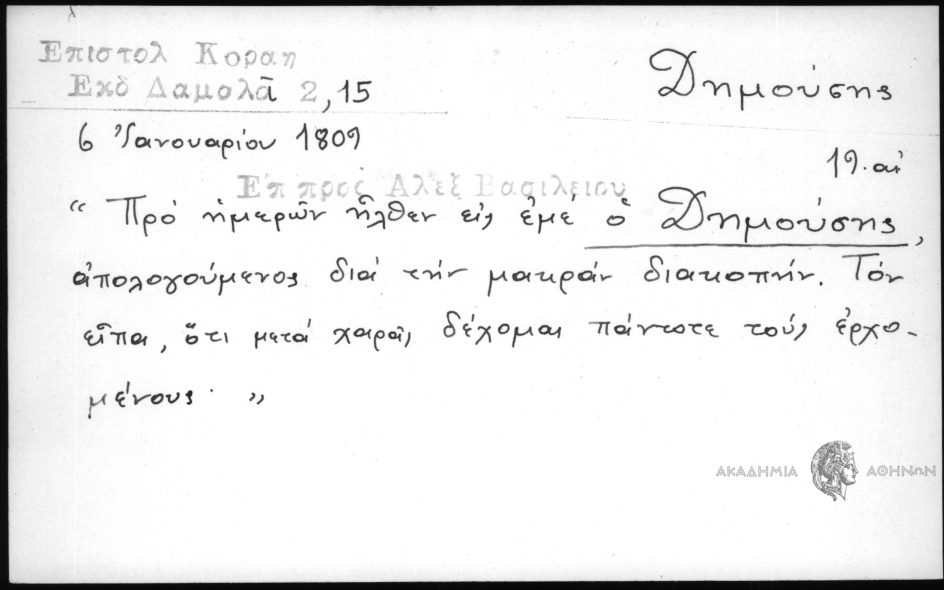 Επιστολ Κοραη
Εκδ Δαμαλᾶ 2,15
Δημούσης
6 Ἰανουαρίου 1809
19. αἰ
Επ προς Αλεξ Βασιλειου
“ Πρό ἡμερῶν ἦλθεν εἰς ἐμέ ὁ Δημούσης,
ἀπολογούμενος διά τήν μακράν διακοπήν. Τόν
εἶπα, ὅτι μετά χαρᾶς δέχομαι πάντοτε τούς ἐρχο-
μένους. ”
ΑΚΑΔΗΜΙΑ ΑΘΗΝΩΝ